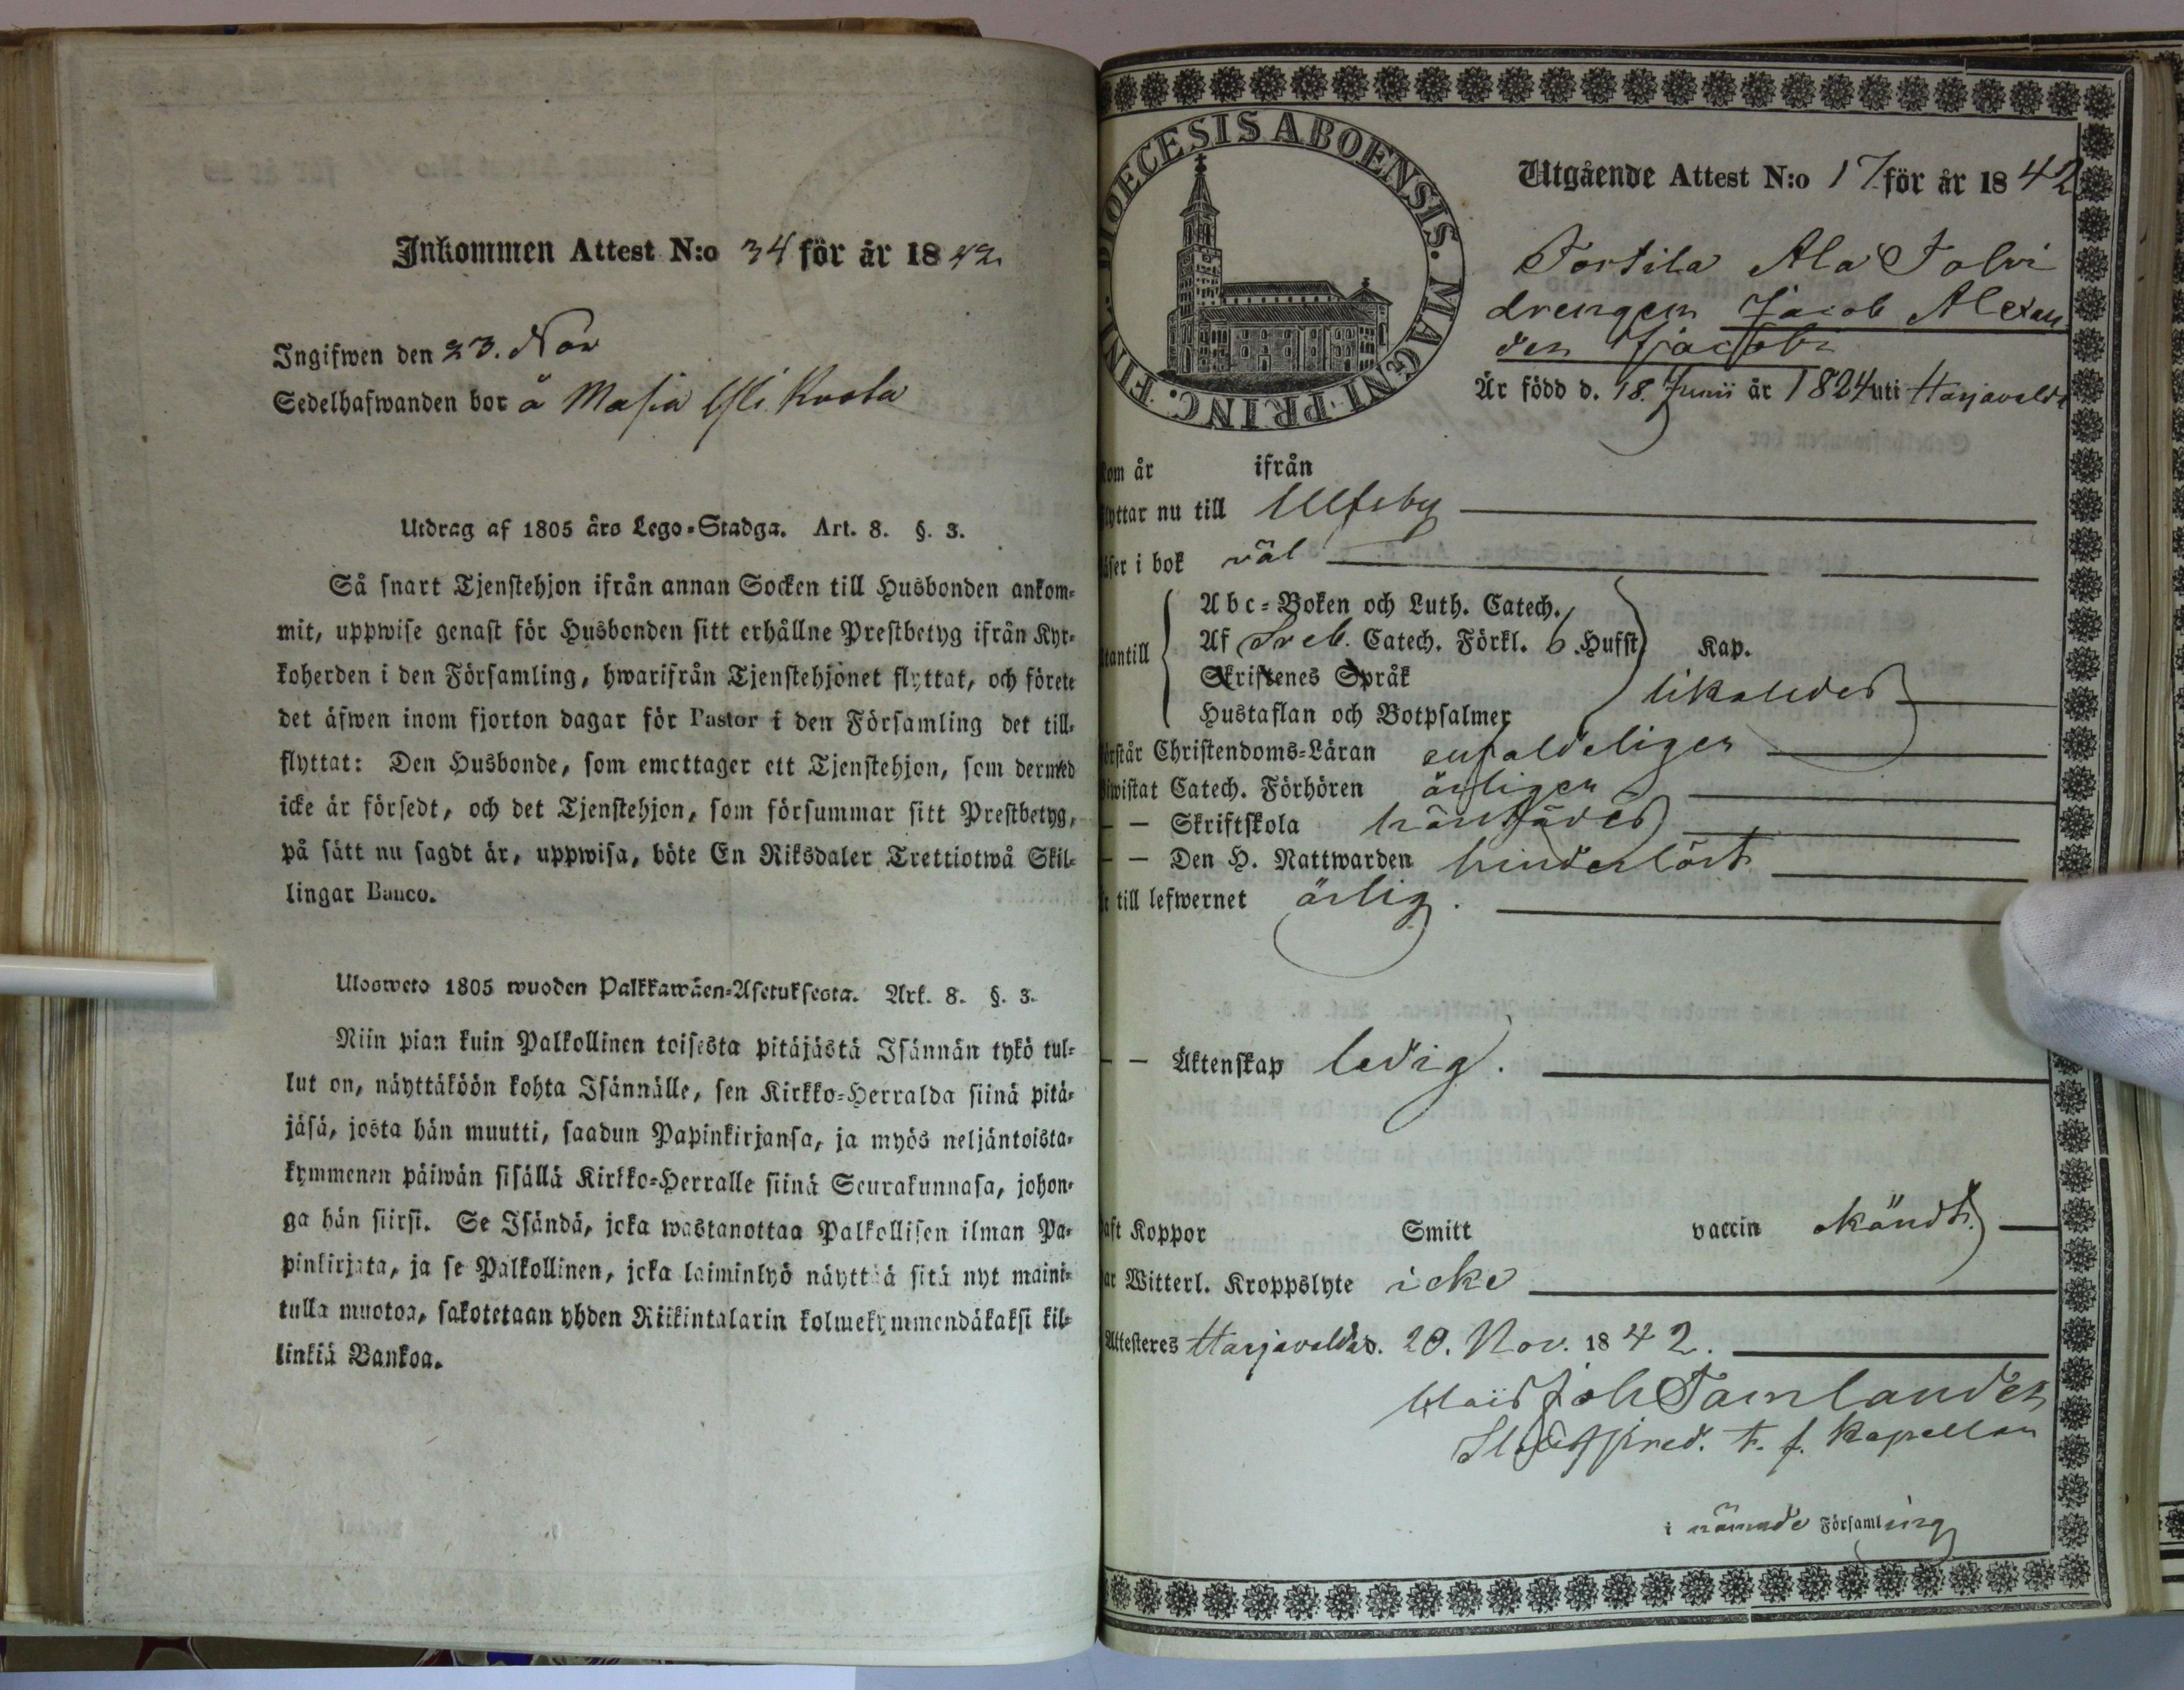 Inkommen Attest N:o 34 för år 1842
Ingifwen den 23. Nov
Sedelhafwanden bor å Masia Yli Knola
Utdrag af 1805 års Lego-Stadga. Art. 8. §. 3.
Så snart Tjenstehjon ifrån annan Socken till Husbonden ankom-
mit, uppwise genast för Husbonden sitt erhållne Prestbetyg ifrån Kyr-
koherden i den Församling, hwarifrån Tjenstehjonet flyttat, och förete
det äfwen inom fjorton dagar för Pastor i den Församling det till-
flyttat: Den Husbonde, som emottager ett Tjenstehjon, som dermed
icke är försedt, och det Tjenstehjon, som försummar sitt Prestbetyg,
på sätt nu sagdt är, uppwisa, böte En Riksdaler Trettiotwå Skil-
lingar Banco.
Ulosweto 1805 wuoden Palkkawäen-Asetuksesta. Art. 8. §. 3.
Niin pian kuin Palkollinen toisesta pitäjästä Isännän tykö tul-
lut on, näyttäköön kohta Isännälle, sen Kirkko-Herralda siinä pitä-
jäsä, josta hän muutti, saadun Papinkirjansa, ja myös neljäntoista-
kymmenen päiwän sisällä Kirkko-Herralle siinä Seurakunnasa, johon-
ga hän siirsi. Se Isändä, joka wastanottaa Palkollisen ilman Pa-
pinkirjata, ja se Palkollinen, joka laiminlyö näyttää sitä nyt maini-
tulla muotoa, sakotetaan yhden Riikintalarin kolmekymmendäkaksi kil-
linkiä Bankoa.
DIOECESIS ABOENSIS. MAGNI PRINC. FINL.
Utgående Attest N:o 17 för år 1842
Torttila Ala Talvi
drengen Jacob Alexan
der Jacobi
Är född d. 18. Junii år 1824 uti Harjavalda
kom år ifrån
flyttar nu till Ulfsby
läser i bok väl
Abc-Boken och Luth. Catech.
Af Sveb. Catech. Förkl. 6 Hufst Kap.
utantill
Skriftenes Språk
likaledes
Hustaflan och Botpsalmer
förstår Christendoms-Läran enfaldeligen
biwistat Catech. Förhören årligen
— — Skriftskola
— — Den H. Nattwarden hinderlöst
är till lefwernet ärlig.
— — Äktenskap ledig.
haft Koppor Smitt vaccin okändt.
har Witterl. Kroppslyte icke
Attesteres Harjavalda d. 20. Nov. 1842.
Joh Tamlander
pred. t. f. Kapellan
i nämnde Församling